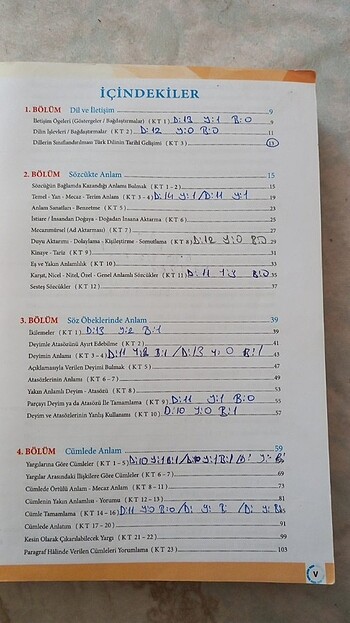 İÇİNDEKİLER
1. BÖLÜM Dil ve İletişim 9
İletişim Ögeleri (Göstergeler / Bağdaştırmalar) ( KT 1 ) D:13 Y:1 B:0 9
Dilin İşlevleri / Bağdaştırmalar ( KT 2 ) D:12 Y:0 B:0 11
Dillerin Sınıflandırılması Türk Dilinin Tarihî Gelişimi ( KT 3 ) 13
2. BÖLÜM Sözcükte Anlam 15
Sözcüğün Bağlamda Kazandığı Anlamı Bulmak ( KT 1 - 2 ) 15
Temel - Yan - Mecaz - Terim Anlam ( KT 3 - 4 ) D:14 Y:1 / D:11 Y:1 19
Anlam Sanatları - Benzetme ( KT 5 ) 23
İstiare / İnsandan Doğaya - Doğadan İnsana Aktarma ( KT 6 ) 25
Mecazımürsel (Ad Aktarması) ( KT 7 ) 27
Duyu Aktarımı - Dolaylama - Kişileştirme - Somutlama ( KT 8 ) D:12 Y:0 B:0 29
Kinaye - Tariz ( KT 9 ) 31
Eş ve Yakın Anlamlılık ( KT 10 ) 33
Karşıt, Nicel - Nitel, Özel - Genel Anlamlı Sözcükler ( KT 11 ) D:11 Y:3 B:0 35
Sesteş Sözcükler ( KT 12 ) 37
3. BÖLÜM Söz Öbeklerinde Anlam 39
İkilemeler ( KT 1 ) D:13 Y:2 B:1 39
Deyimle Atasözünü Ayırt Edebilme ( KT 2 ) 41
Deyimin Anlamı ( KT 3 - 4 ) D:11 Y:2 B:1 / D:13 Y:0 B:1 43
Açıklamasıyla Verilen Deyimi Bulmak ( KT 5 ) 47
Atasözlerinin Anlamı ( KT 6 - 7 ) 49
Yakın Anlamlı Deyim - Atasözü ( KT 8 ) 53
Parçayı Deyim ya da Atasözü İle Tamamlama ( KT 9 ) D:11 Y:1 B:0 55
Deyim ve Atasözlerinin Yanlış Kullanımı ( KT 10 ) D:10 Y:0 B:1 57
4. BÖLÜM Cümlede Anlam 59
Yargılarına Göre Cümleler ( KT 1 - 5 ) D:10 Y:1 B:1 / D:10 Y:1 B:1
Yargılar Arasındaki İlişkilere Göre Cümleler ( KT 6 - 7 ) 69
Cümlede Örtülü Anlam - Mecaz Anlam ( KT 8 - 11 ) 73
Cümlenin Yakın Anlamlısı - Yorumu ( KT 12 - 13 ) 81
Cümle Tamamlama ( KT 14 - 16 ) D:11 Y:0 B:0 / D: Y: B: / D: Y: B: 85
Cümlede Anlatım ( KT 17 - 20 ) 91
Kesin Olarak Çıkarılabilecek Yargı ( KT 21 - 22 ) 99
Paragraf Hâlinde Verilen Cümleleri Yorumlama ( KT 23 ) 103
V